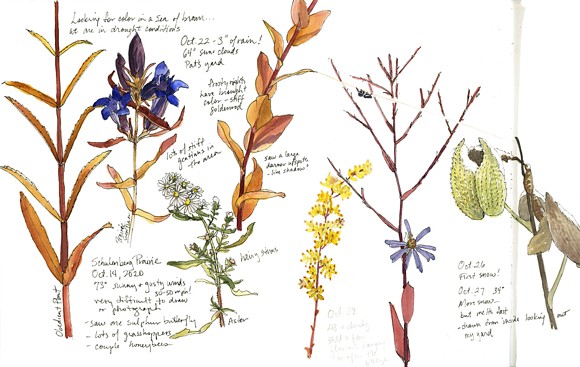 Looking for color in a sea of brown...
at me in drought conditions!
Oct. 22 - 3" of rain!
64° sun & clouds
Pat's yard
Frosty nights
have brought
color - stiff
goldenrod
lots of stiff
gentians in
the area
saw a large
darner
- like shadow!
hairy stems
Schulenberg Prairie
Oct. 14, 2020
73° sunny & gusty winds
30-50 mph!
very difficult to draw
or photograph
- saw one sulphur butterfly
- lots of grasshoppers
- couple honeybees
Obedient Plant
Aster
Oct. 28
Oct. 26
First snow!
Oct. 27 34°
More snow
but melts fast
- drawn from inside looking out
my yard